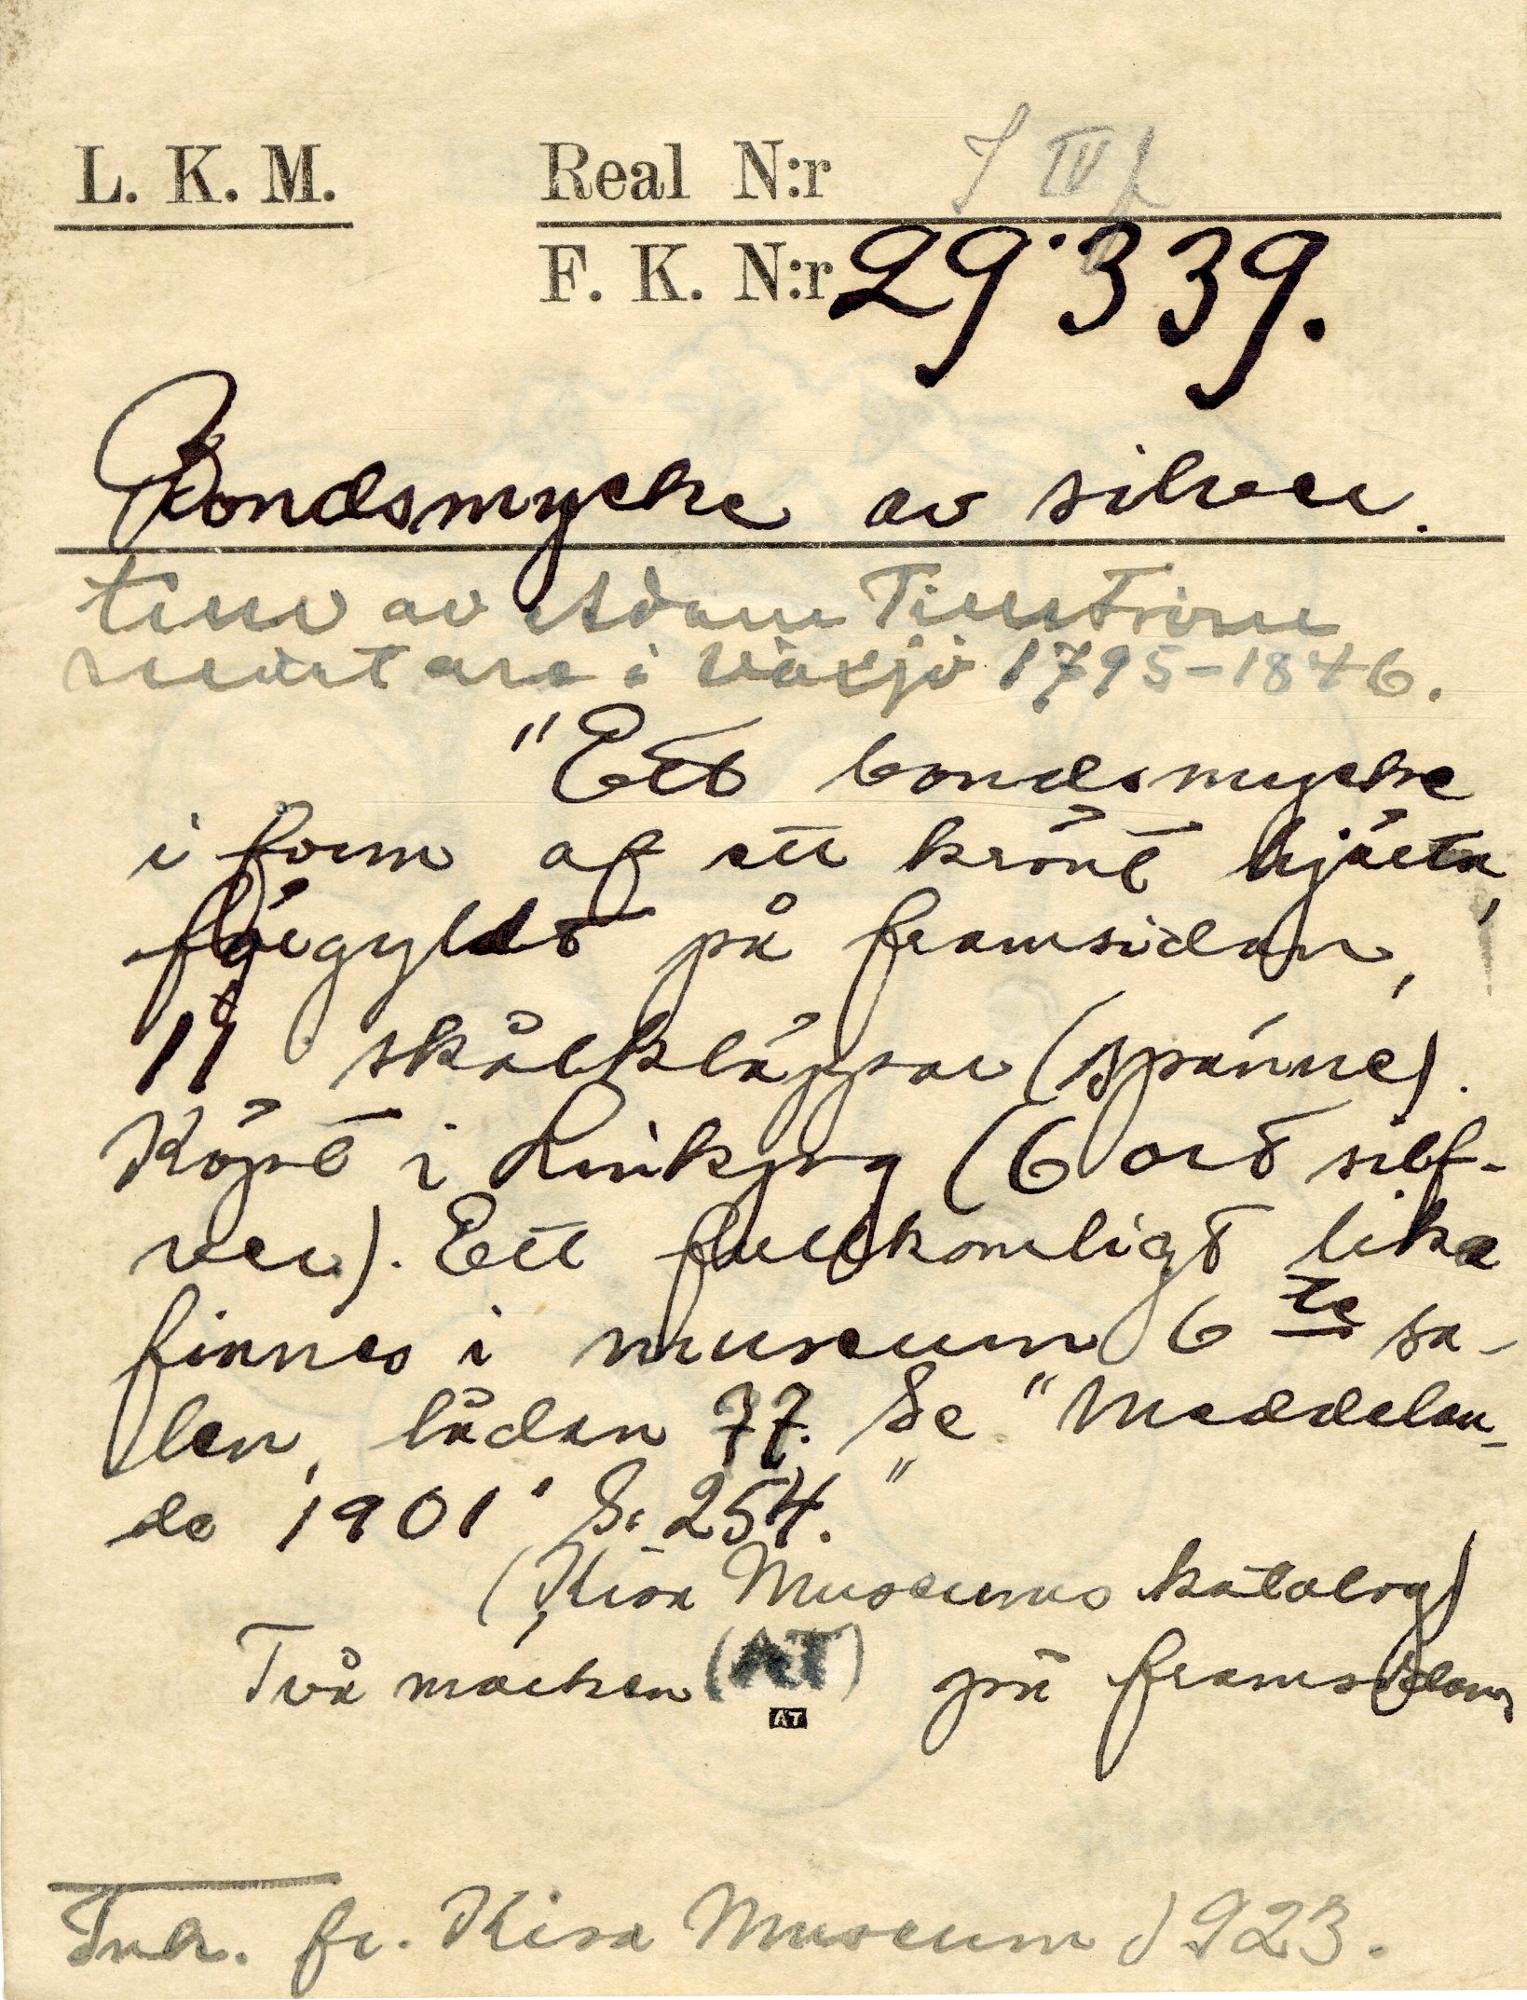 L. K. M.
Real N:r
F. K. N:r 29'339.
Bondsmycke av silver.
Tillv av Adam Tillström
mästare i Växjö 1795-1846.
"Ett bondsmycke
i form af ett krönt hjärta,
förgyldt på framsidan,
11 skålkläppar (spänne).
Köpt i Linkjpg (6 ort silf-
ver). Ett fullkomligt lika
finnes i museum 6 te sa-
len, lådan 77. Se "Meddelan-
de 1901' S. 254."
(Kisa Museums katalog)
Två märken (AT) på framsidan
AT
Ink. fr. Kisa Museum 1923.